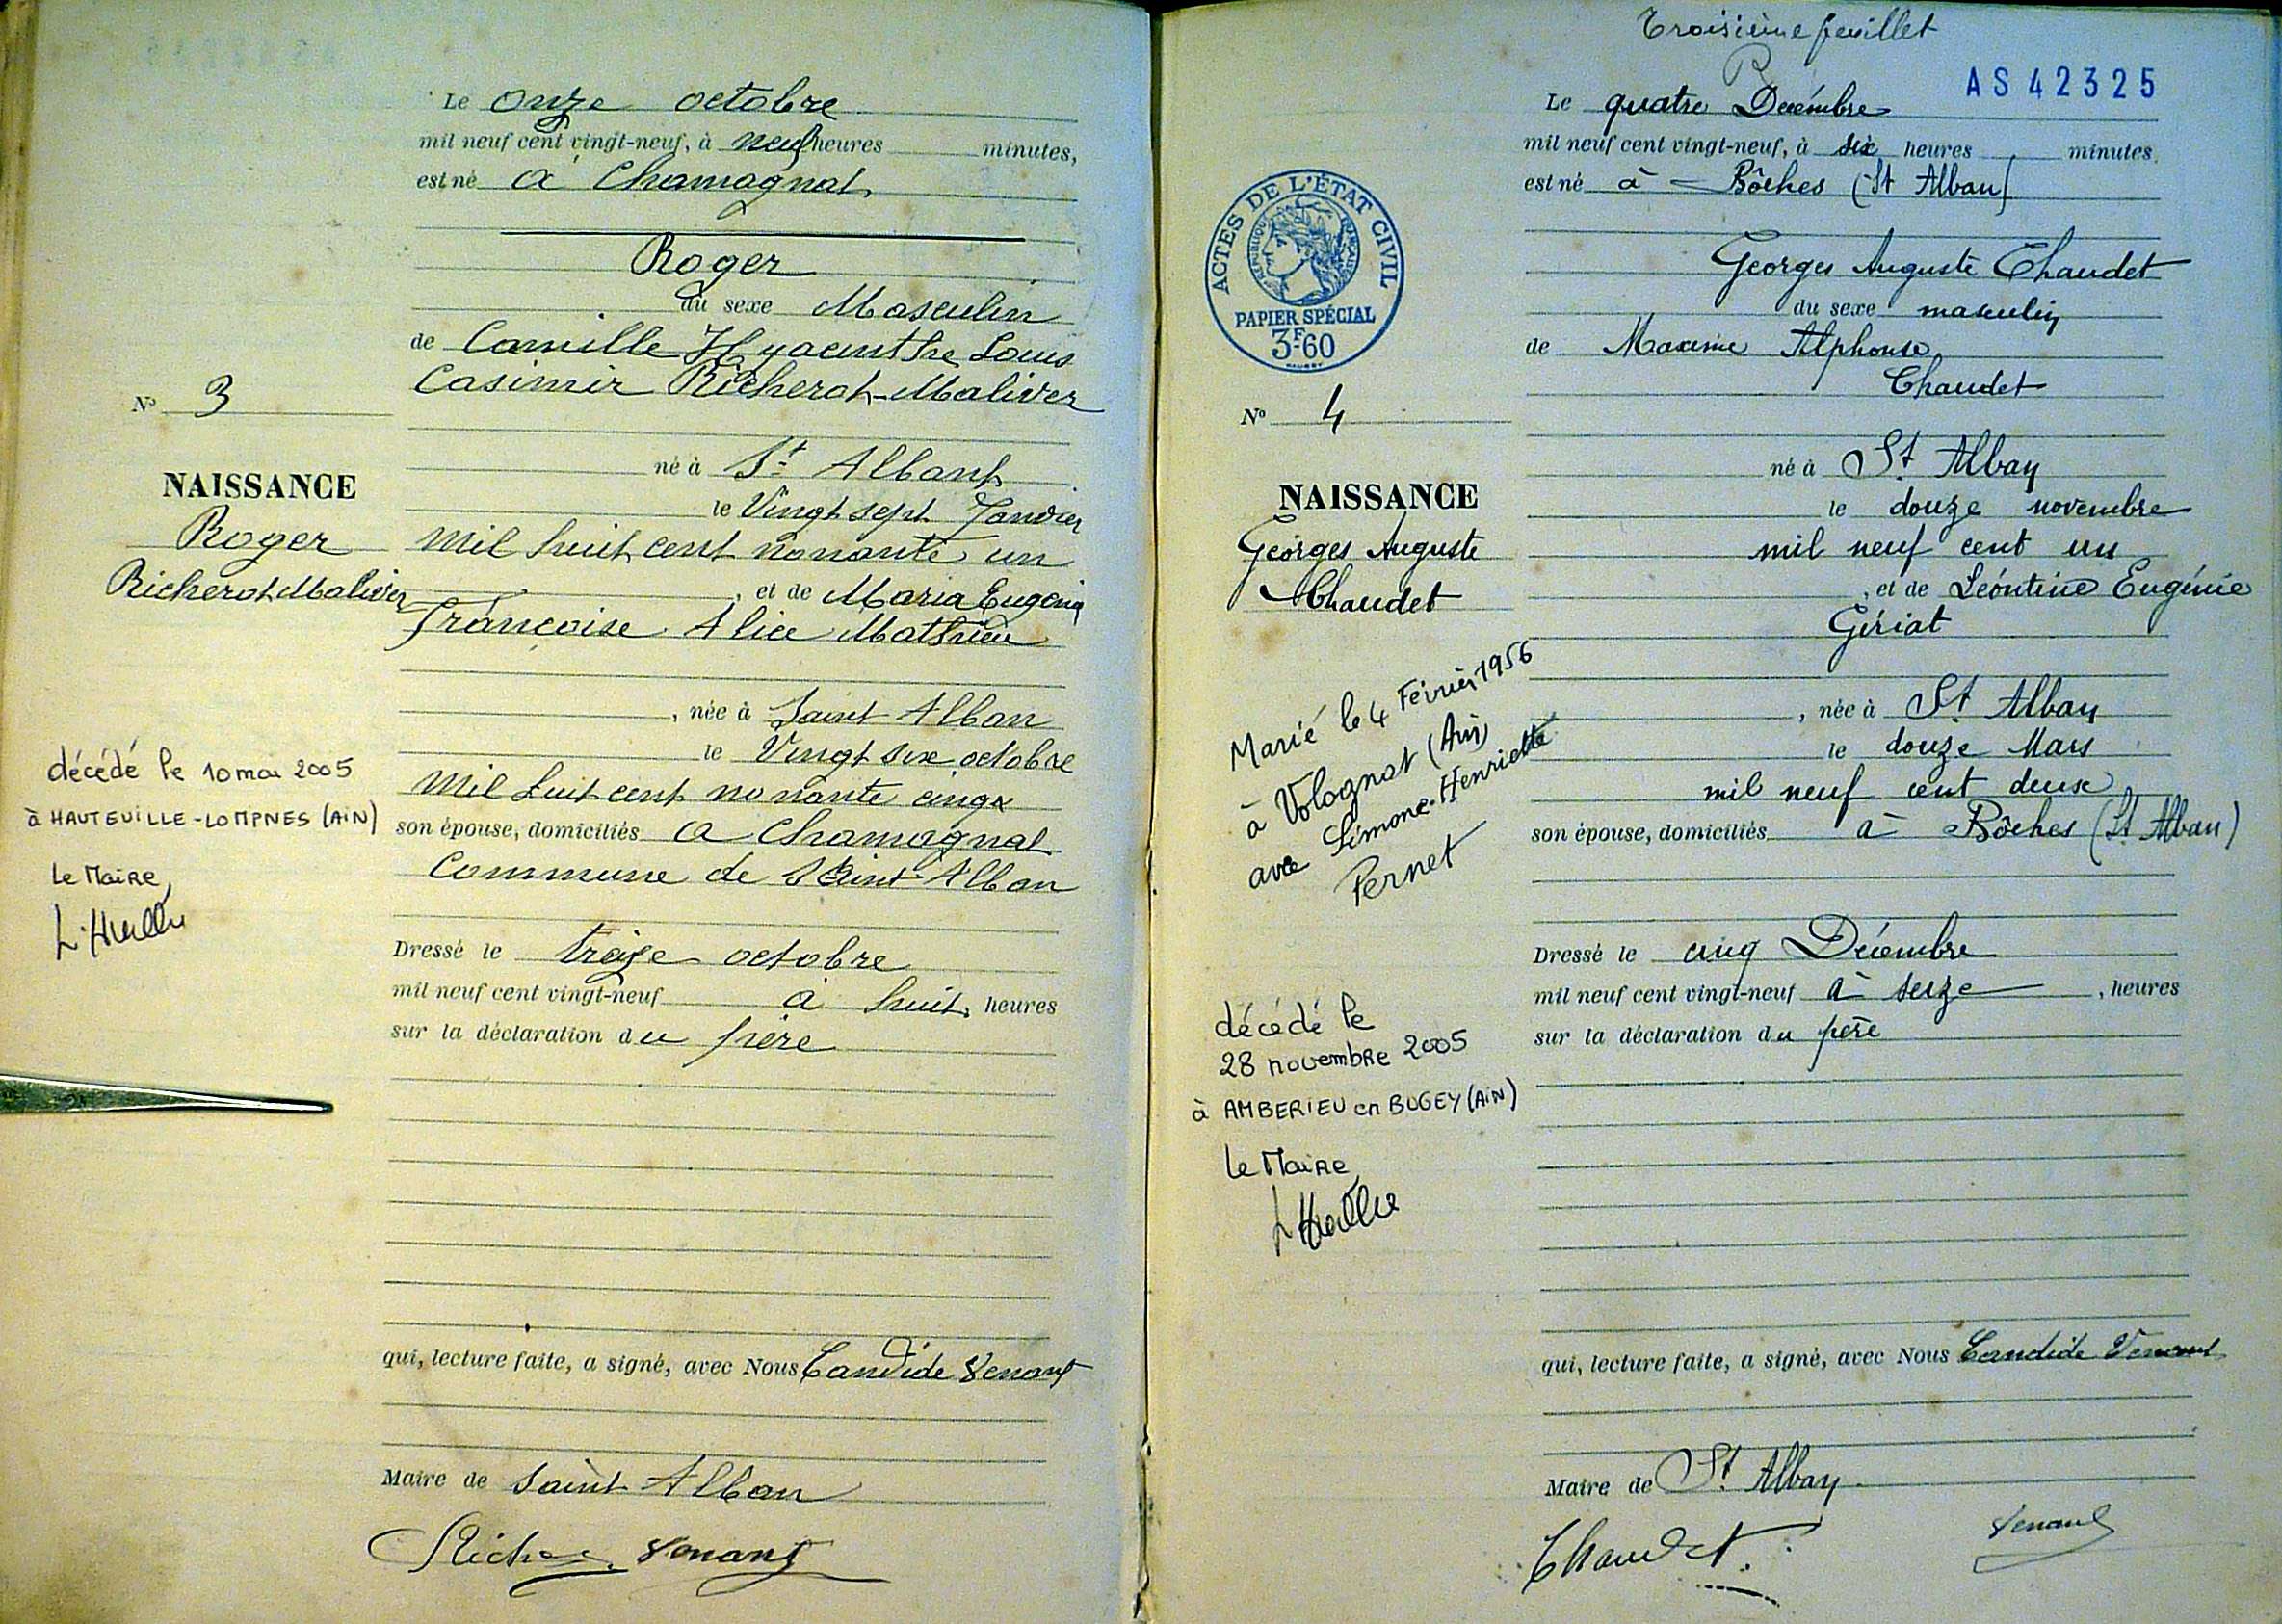 Le onze octobre
mil neuf cent vingt-neuf, à neuf heures minutes,
est né à Chamagnat
Roger
du sexe Masculin
de Camille Hyacinthe Louis
Casimir Richerot-Maliver
N° 3
né à St Alban
le Vingt sept Janvier
NAISSANCE
Roger
Richerot Maliver
mil huit cent nonante un
, et de Maria Eugenia
Françoise Alice Mathieu
, née à Saint Alban
le Vingt six octobre
Mil huit cent nonante cinq
son épouse, domiciliés a Chamagnat
Commune de Saint Alban
décédé le 10 mai 2005
à HAUTEVILLE-LOMPNES (AiN)
Le Maire
Dressé le treize octobre
mil neuf cent vingt-neuf à huit, heures
sur la déclaration du père
qui, lecture faite, a signé, avec Nous Candide Venant
Maire de Saint Alban
Venant
Troisième feuillet
AS 42325
Le quatre Décembre
mil neuf cent vingt-neuf, à six heures minutes
est né à Bôches (St Alban)
ACTES DE L'ÉTAT CIVIL
RÉPUBLIQUE FRANÇAISE
PAPIER SPÉCIAL
3F60
Georges Auguste Chaudet
du sexe masculin
de Maxime Alphonse
Chaudet
N° 4
né à St Alban
le douze novembre
mil neuf cent un
NAISSANCE
Georges Auguste
Chaudet
, et de Léontine Eugénie
Gériat
, née à St Alban
le douze Mars
mil neuf cent deux
son épouse, domiciliés à Bôches (St Alban)
Marié le 4 Février 1956
à Volognat (Ain)
avec Simone-Henriette
Pernet
Dressé le cinq Décembre
mil neuf cent vingt-neuf à seize , heures
sur la déclaration du père
décédé le
28 novembre 2005
à AMBERIEU en BUGEY (AiN)
Le Maire
qui, lecture faite, a signé, avec Nous Candide Venant
Maire de St Alban
Chaudet
Venant